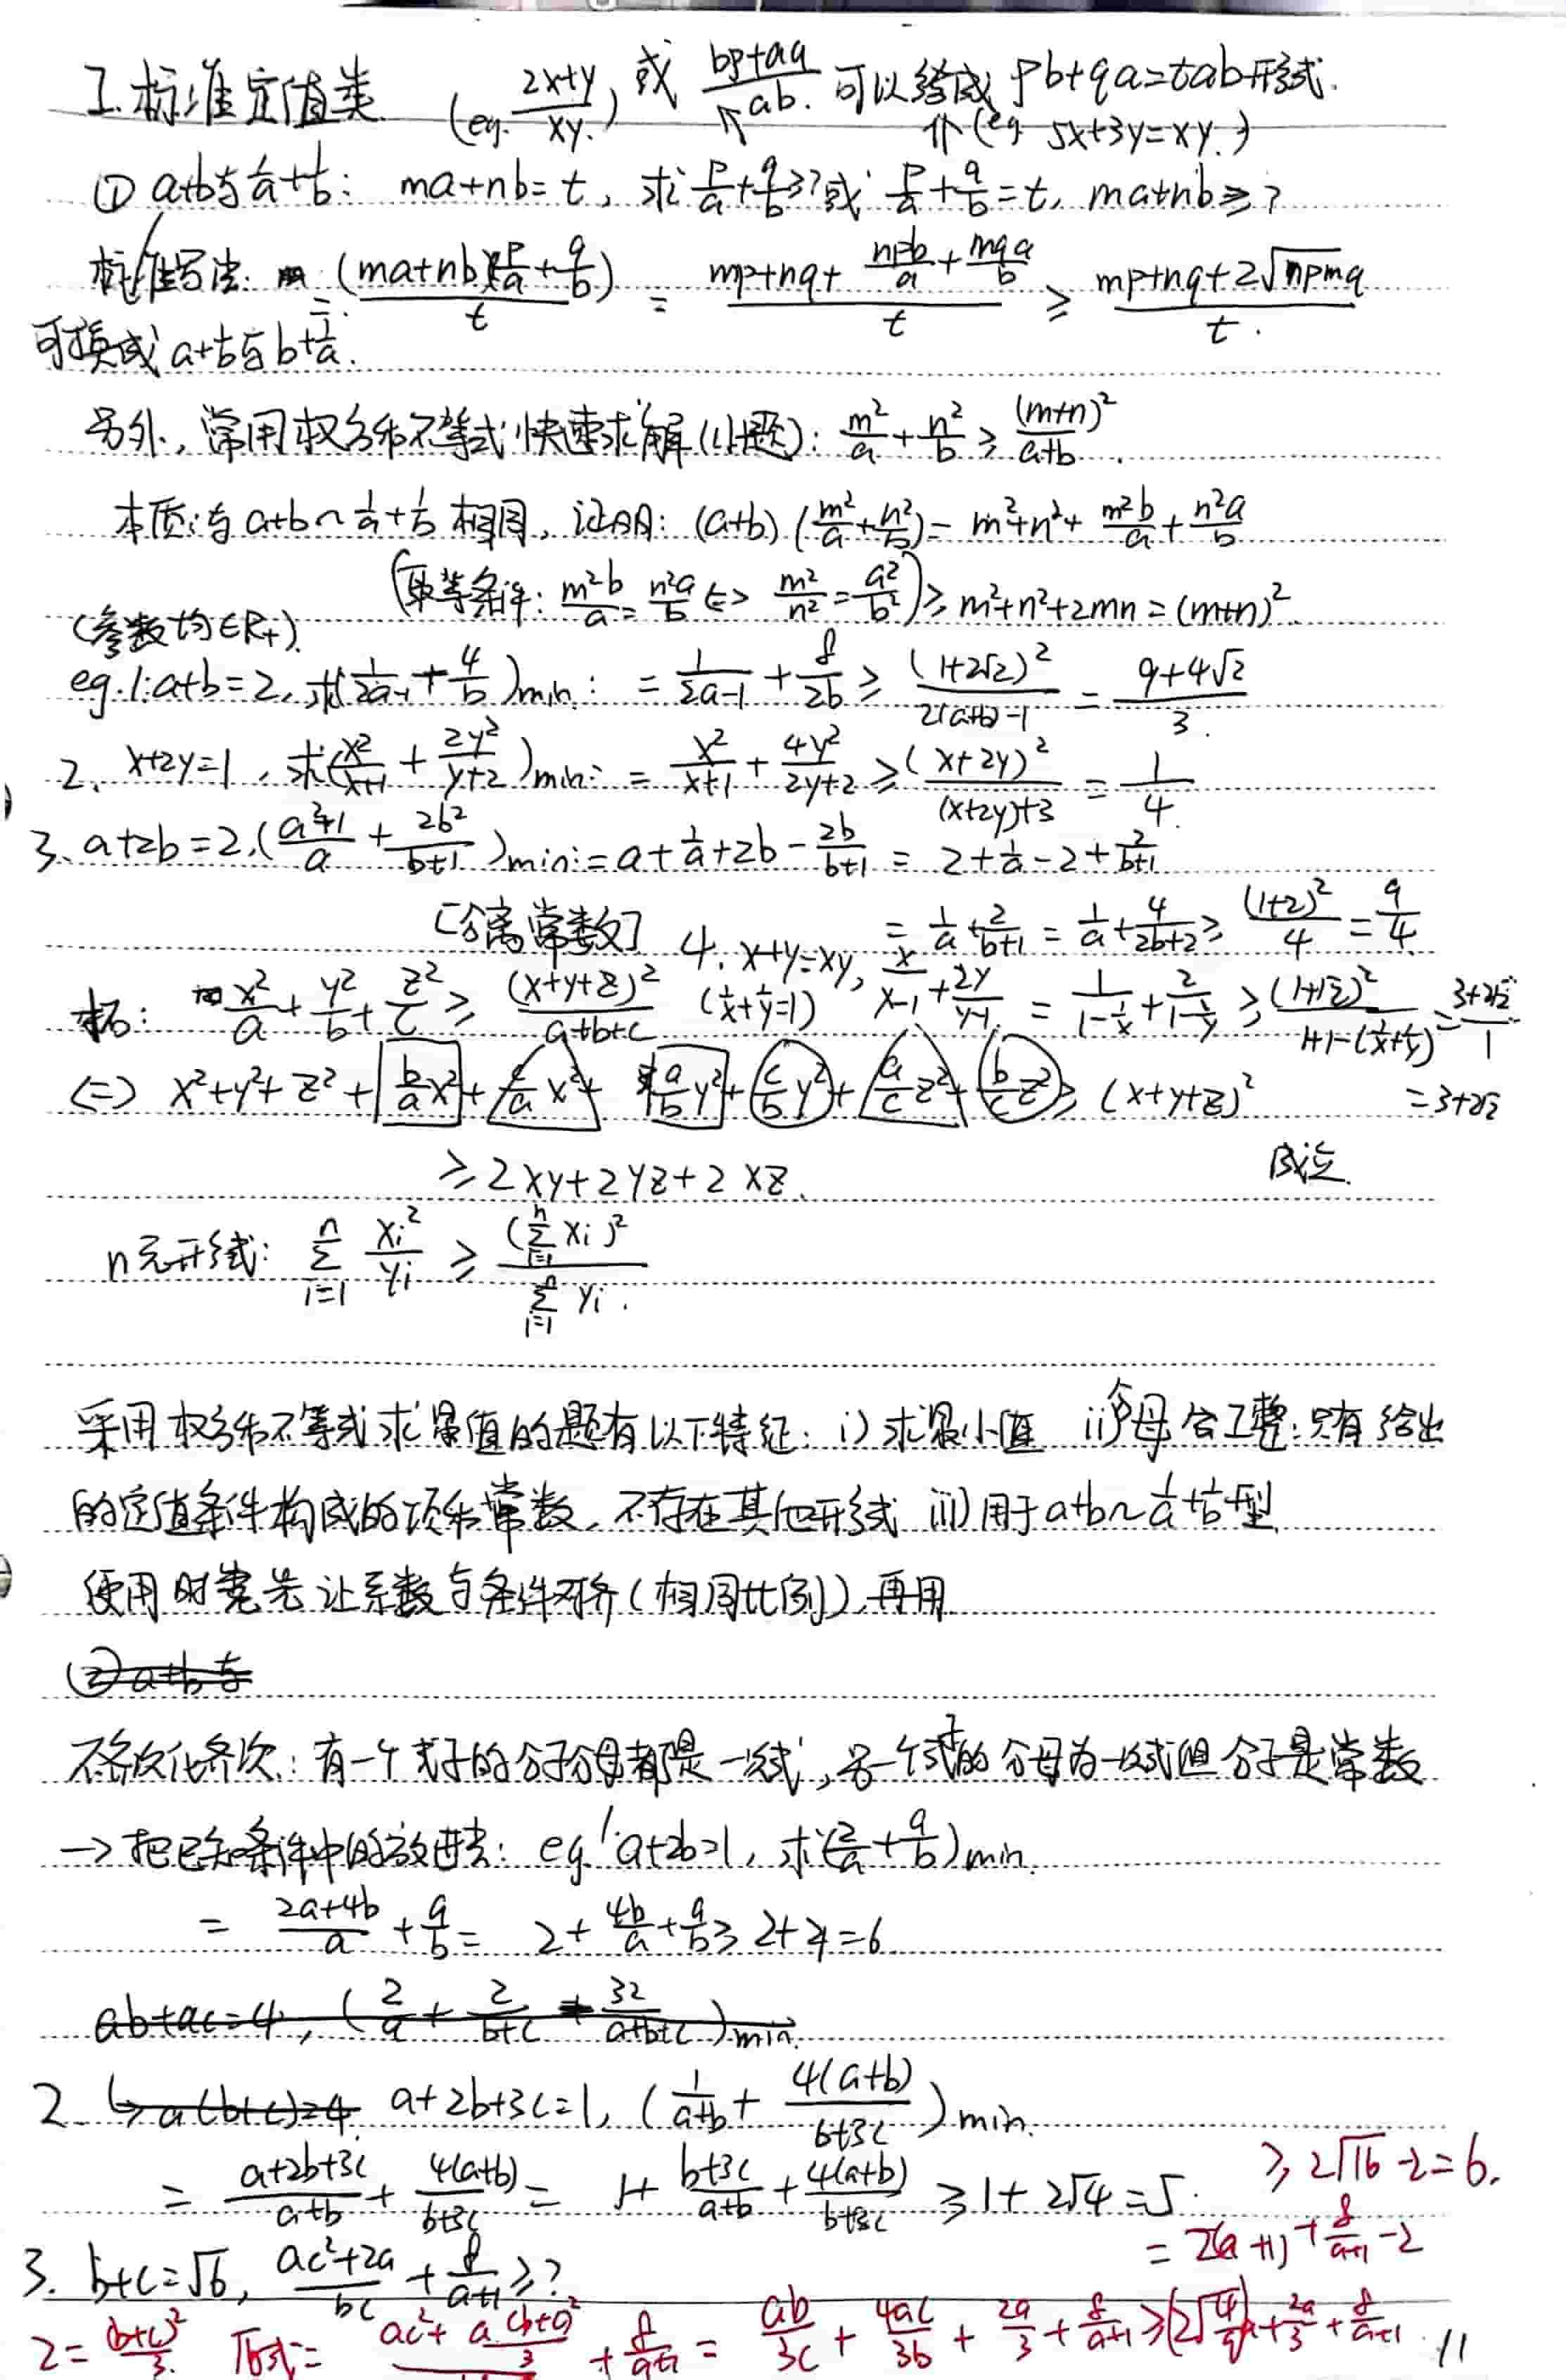 I.标准定值类 (eg. (2x+y)/(xy)) 或 (bp+aq)/(ab) 可以 成 pb+qa=tab形式.
(eg 5x+3y=xy.)
① a+b与1/a+1/b: ma+nb=t, 求 p/a+q/b≥? 或 p/a+q/b=t, ma+nb≥?
标准写法: = (ma+nb)(p/a+q/b)/t = (mp+nq+npb/a+mqa/b)/t ≥ (mp+nq+2√(npmq))/t.
可换成 a+1/b与b+1/a.
另外, 常用权方和不等式快速求解(小题): m²/a+n²/b ≥ (m+n)²/(a+b).
本质:与 a+b~1/a+1/b 相同, 证明: (a+b)(m²/a+n²/b)= m²+n²+m²b/a+n²a/b
(取等条件: m²b/a=n²a/b ⇔ m²/n²=a²/b²) ≥ m²+n²+2mn=(m+n)².
(参数均∈R+).
eg.1:a+b=2, 求(1/(2a-1)+4/b)min: = 1/(2a-1)+8/(2b) ≥ (1+2√2)²/(2(a+b)-1) = (9+4√2)/3.
2. x+2y=1, 求(x²/(x+1)+2y²/(y+2))min: = x²/(x+1)+4y²/(2y+2) ≥ (x+2y)²/((x+2y)+3) = 1/4.
3. a+2b=2,((a²+1)/a+2b²/(b+1))min:= a+1/a+2b-2b/(b+1) = 2+1/a-2+2/(b+1)
[分离常数] = 1/a+2/(b+1) = 1/a+4/(2b+2) ≥ (1+2)²/4 = 9/4.
4. x+y=xy, x/(x-1)+2y/(y-1) = 1/(1-1/x)+2/(1-1/y) ≥ (1+√2)²/(1+1-(1/x+1/y)) = (3+2√2)/1
(1/x+1/y=1)
=3+2√2
拓: x²/a+y²/b+z²/c ≥ (x+y+z)²/(a+b+c)
⇔ x²+y²+z²+(b/a)x²+(c/a)x²+(a/b)y²+(c/b)y²+(a/c)z²+(b/c)z² ≥ (x+y+z)²
≥2xy+2yz+2xz. 成立.
n元形式: Σ(i=1→n) xi²/yi ≥ (Σ(i=1→n) xi)²/Σ(i=1→n) yi.
采用权方和不等式求最值的题有以下特征: i) 求最小值 ii)分母 工整:只有给出
的定值条件构成的项和常数, 不存在其他形式 iii) 用于a+b~1/a+1/b型
使用时 先让系数与条件对齐(相同比例),再用
②a+b与
不齐次化齐次: 有一个式子的分子分母都是一次式,另一个式子的分母为一次式但分子是常数
→把已知条件中的放进去: eg.1:a+2b=1, 求(2/a+a/b)min.
= (2a+4b)/a+a/b = 2+4b/a+a/b ≥ 2+4=6
ab+ac=4, (2/a+2/(b+c)+32/(a+b+c))min.
2. ↳a(b+c)=4. a+2b+3c=1, (1/(a+b)+4(a+b)/(b+3c))min.
= (a+2b+3c)/(a+b)+4(a+b)/(b+3c) = 1+(b+3c)/(a+b)+4(a+b)/(b+3c) ≥ 1+2√4=5.
≥2√16-2=6.
=2(a+1)+8/(a+1)-2
3. b+c=√6, (ac²+2a)/(bc)+8/(a+1)≥?
2=(b+c)²/3. 原式= ac²+a(b+c)²/3 +8/(a+1) = ab/3c+4ac/3b+2a/3+8/(a+1) ≥(2√(4/9))a+2a/3+8/(a+1)
11